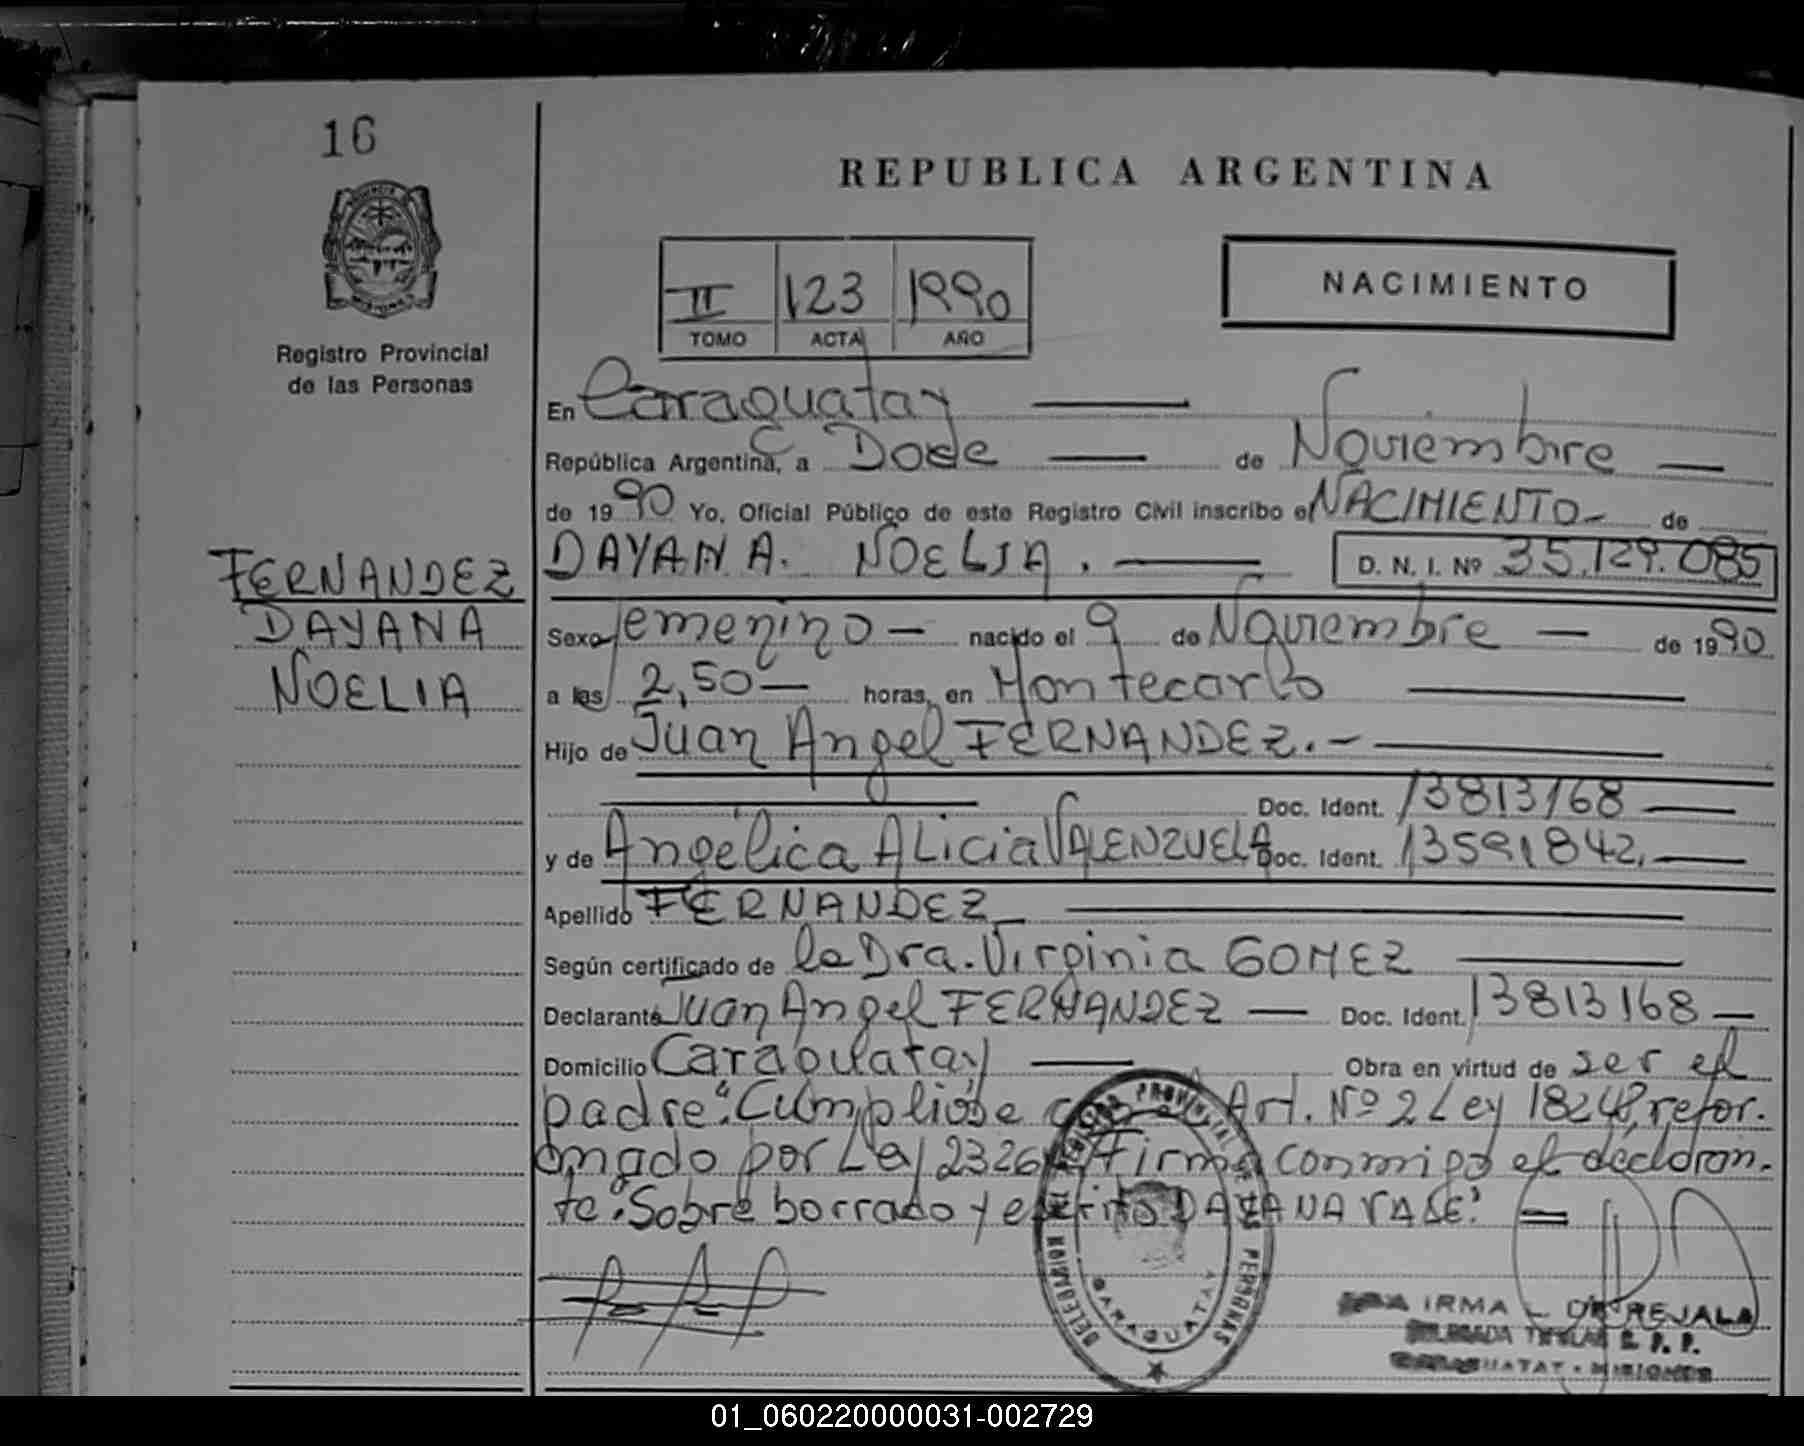 16
Registro Provincial
de las Personas
FERNANDEZ
DAYANA
NOELIA
REPUBLICA ARGENTINA
II 123 1990
TOMO ACTA AÑO
NACIMIENTO
En Caraguatay
República Argentina, a Doce de Noviembre
de 1990 Yo, Oficial Público de este Registro Civil inscribo el NACIMIENTO de
DAYANA. NOELIA. D. N. I. Nº 35.129.085
Sexo femenino nacido el 9 de Noviembre de 1990
a las 2,50 horas, en Montecarlo
Hijo de Juan Angel FERNANDEZ.
Doc. Ident. 13813168
y de Angélica ALicia VALENZUELA Doc. Ident. 13591842.
Apellido FERNANDEZ
Según certificado de la Dra. Virginia GOMEZ
Declarante Juan Angel FERNANDEZ Doc. Ident. 13813168
Domicilio Caraguatay Obra en virtud de ser el
padre. "Cumpliose Art. Nº 2 Ley 18248, refor-
mado por Ley 23264 Firma conmigo el declaran-
te. Sobre borrado y escrito DAYANA VALE."
DELEGACION DEL REGISTRO PROVINCIAL DE LAS PERSONAS
CARAGUATAY
IRMA L. DE REJALA
DELEGADA TITULAR R. P. P.
CARAGUATAY - MISIONES
01_060220000031-002729